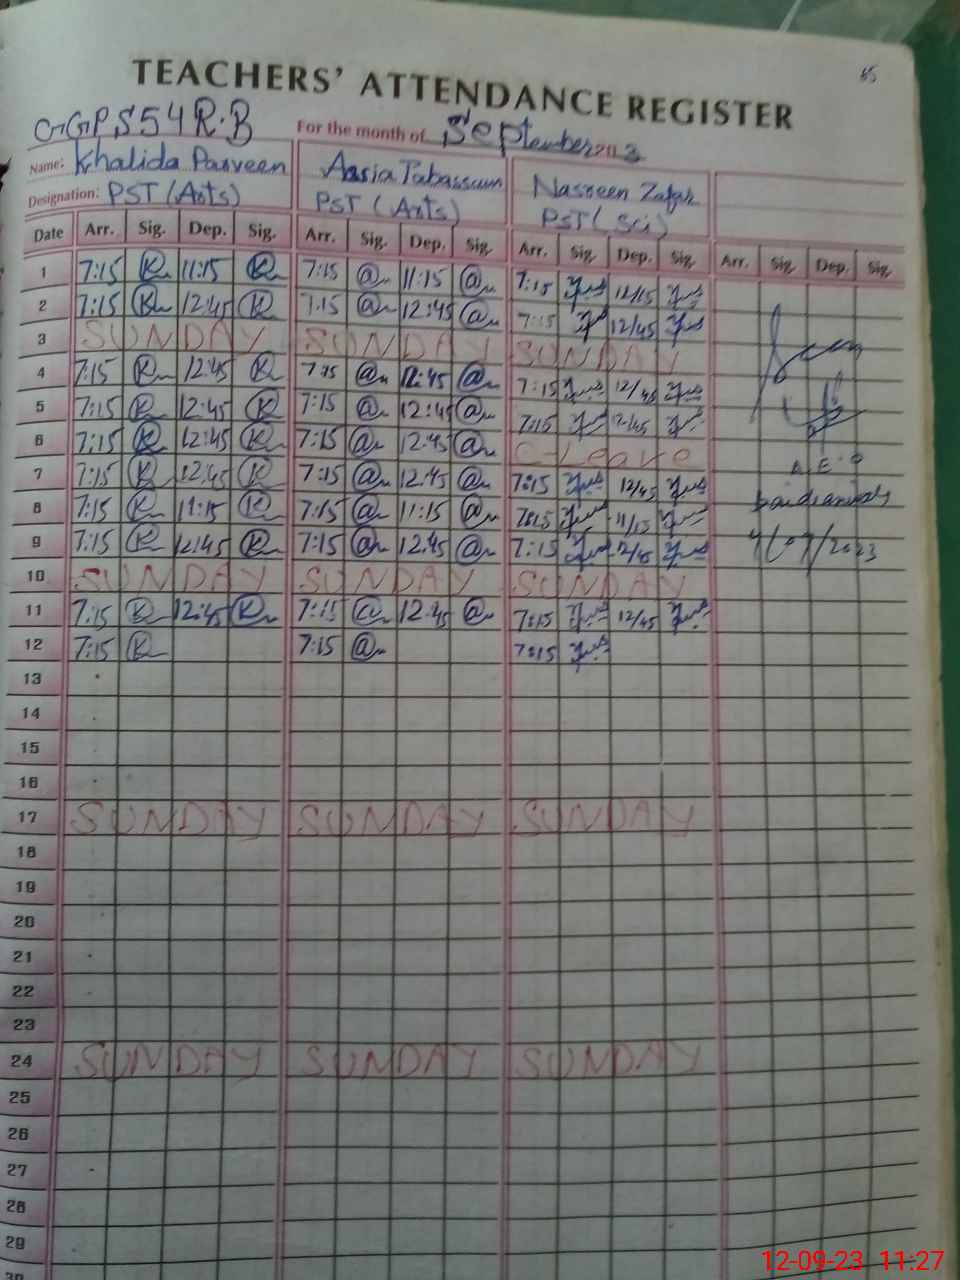 85
TEACHERS' ATTENDANCE REGISTER
GGPS 54 R.B For the month of September 2023
Name: Khalida Parveen Aasia Tabassum Nasreen Zafar
Designation: PST (Arts) PST (Arts) PST (Sci)
Date Arr. Sig. Dep. Sig. Arr. Sig. Dep. Sig. Arr. Sig. Dep. Sig. Arr. Sig. Dep. Sig.
1 7:15 K 11:15 K 7:15 @ 11:15 @ 7:15
2 7:15 K 12:45 K 7:15 @ 12:45 @ 7:15 12/45
3 SUNDAY SUNDAY SUNDAY
4 7:15 K 12:45 K 7:15 @ 12:45 @ 7:15 12/45
5 7:15 K 12:45 K 7:15 @ 12:45 @ 7:15 12/45
6 7:15 K 12:45 K 7:15 @ 12:45 @ C-Leave
7 7:15 K 12:45 K 7:15 @ 12:45 @ 7:15 12/45
8 7:15 K 11:15 K 7:15 @ 11:15 @ 7:15 11/15
9 7:15 K 12:45 K 7:15 @ 12:45 @ 7:15 12/45
10 SUNDAY SUNDAY SUNDAY
11 7:15 K 12:45 K 7:15 @ 12:45 @ 7:15 12/45
12 7:15 K 7:15 @ 7:15
13
14
15
16
17 SUNDAY SUNDAY SUNDAY
18
19
20
21
22
23
24 SUNDAY SUNDAY SUNDAY
25
26
27
28
29
30
A.E.O
12-09-23 11:27